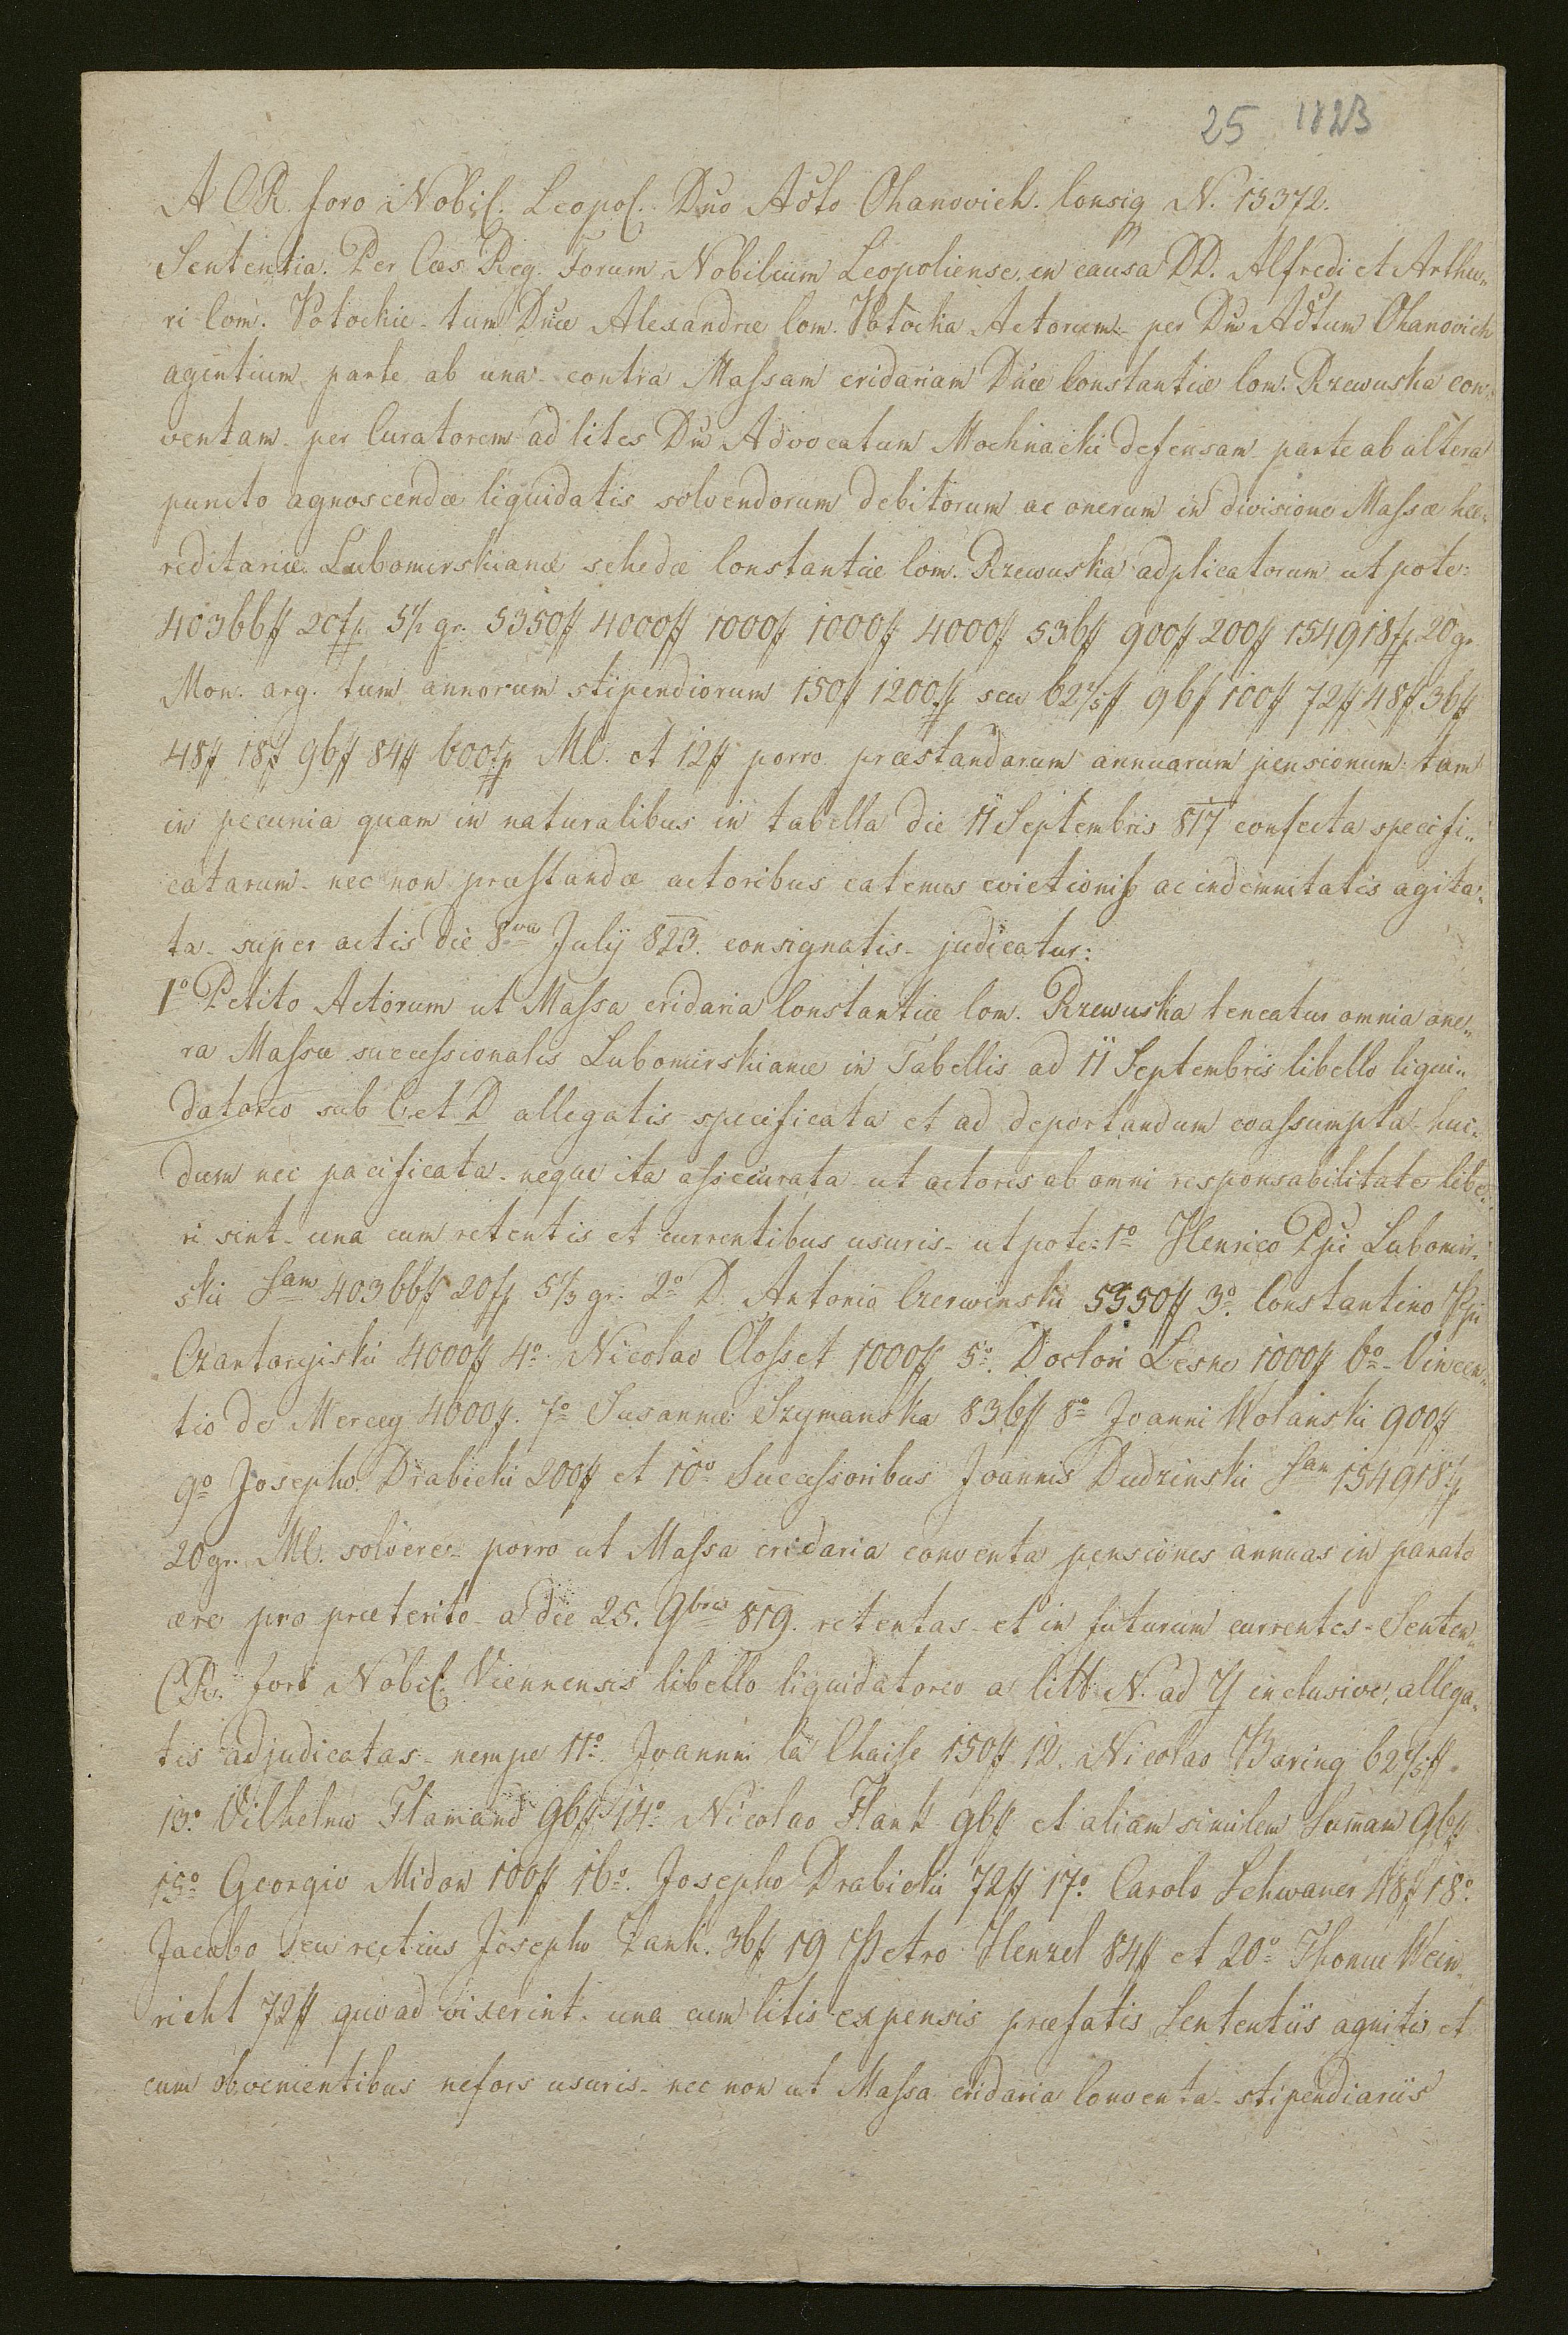 25 1823
A CR. foro Nobil. Leopol. Dno Adto Ohanovich. Consig N. 13372.
Sententia. Per Caes Reg. Forum Nobilium Leopoliense in causa DD. Alfredi et Arthu„
ri Com. Potockie - tum Dnae Alexandrae Com. Potocka Actorum - per Dm Adtum Ohanovich
agentium parte ab una - contra Massam cridariam Dnae Constantiae Com. Rzewuska con„
ventam - per Curatorem ad lites Dm Advocatum Mochnacki defensam - parte ab altera
puncto agnoscendae liquidatis solvendorum debitorum ac onerum in divisione Massae hae„
reditariae Lubomirskianae schedae Constantiae Com. Rzewuska adplicatorum ut pote:
40366ff 20fp 5⅓ gr. 5350ff 4000ff 1000ff 1000ff 4000ff 536ff 900ff 200ff 154918fp 20gr
Mon. arg. tum annorum stipendiorum 150ff 1200fp seu 62⅖ff 96ff 100ff 72ff 48ff 36ff
48ff 18ff 96ff 84ff 600fp MC. et 12ff porro praestandarum annuarum pensionum tam
in pecunia quam in naturalibus in tabella die 11 Septembris 817 confecta specifi„
catarum - nec non praestandae actoribus eatenus evictionis ac indemnitatis agita„
ta - super actis die 8va July 823. consignatis - judicatur:
1o Petito Actorum ut Massa cridaria Constantiae Com. Rzewuska teneatur omnia one„
ra Massae successionalis Lubomirskianae in Tabellis ad 11 Septembris libello liqui„
datorio sub C et D allegatis specificata et ad deportandum coassumpta huc„
dum nec pacificata - neque ita assecurata - ut actores ab omni responsabilitate libe„
ri sint - una cum retentis et currentibus usuris - ut pote: 1o Henrico Ppi Lubomir„
ski Sam 40366ff 20fp 5⅓ gr. 2o D. Antonio Czerwinski 5350ff 3o. Constantino Ppi
Czartoryiski 4000ff 4o. Nicolao Closset 1000ff 5o. Doctori Lesne 1000ff 6o - Vincen„
tio de Mercey 4000ff. 7o Susannae Szymanska 836ff 8o Joanni Wolanski 900ff
9o Josepho Drabicki 200ff et 10o Successoribus Joannis Dudzinski Sam 154918fp
20gr. MC. solvere - porro ut Massa cridaria conventa pensiones annuas in parato
aere pro praeterito - a die 25. 9bris 819. retentas - et in futurum currentes - Senten„
CR. fori Nobil. Viennensis libello liquidatorio a litt. N. ad Y inclusive, allega„
tis adjudicatas - nempe 11o. Joanni la Chaise 150ff 12. Nicolao Baring 62⅖ff.
13o. Vilhelmo Flamand 96ff 14o. Nicolao Hank 96ff et aliam similem Sumam 96ff
15o Georgio Midon 100ff 16o. Josepho Drabicki 72ff 17o. Carolo Schwaner 48ff 18o.
Jacobo seu rectius Josepho Zank. 36ff 19 Petro Henzel 84ff et 20o Thomae Wein„
richt 72ff quoad vixerint - una cum litis expensis praefatis Sententiis agnitis et
cum obvenientibus nefors usuris - nec non ut Massa cridaria Conventa - stipendiariis